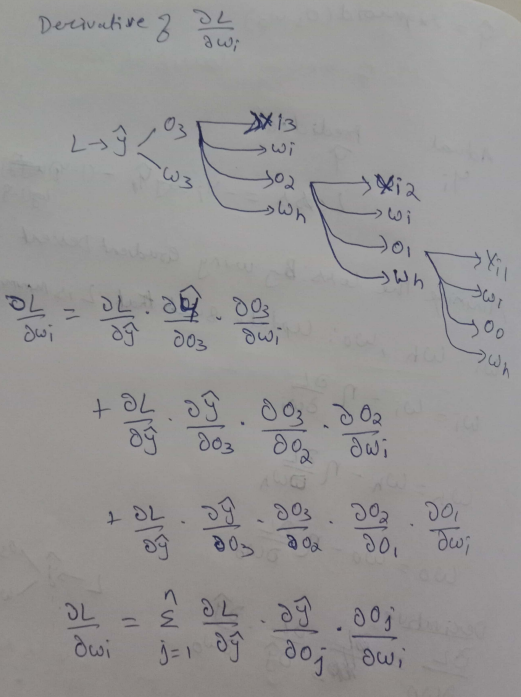 Derivative of ∂L/∂wi
L → ŷ O3 w3
xi3 wi O2 wh
xi2 wi O1 wh
xi1 wi O0 wh
∂L/∂wi = ∂L/∂ŷ · ∂ŷ/∂O3 · ∂O3/∂wi
+ ∂L/∂ŷ · ∂ŷ/∂O3 · ∂O3/∂O2 · ∂O2/∂wi
+ ∂L/∂ŷ · ∂ŷ/∂O3 · ∂O3/∂O2 · ∂O2/∂O1 · ∂O1/∂wi
∂L/∂wi = Σ j=1 n ∂L/∂ŷ · ∂ŷ/∂Oj · ∂Oj/∂wi